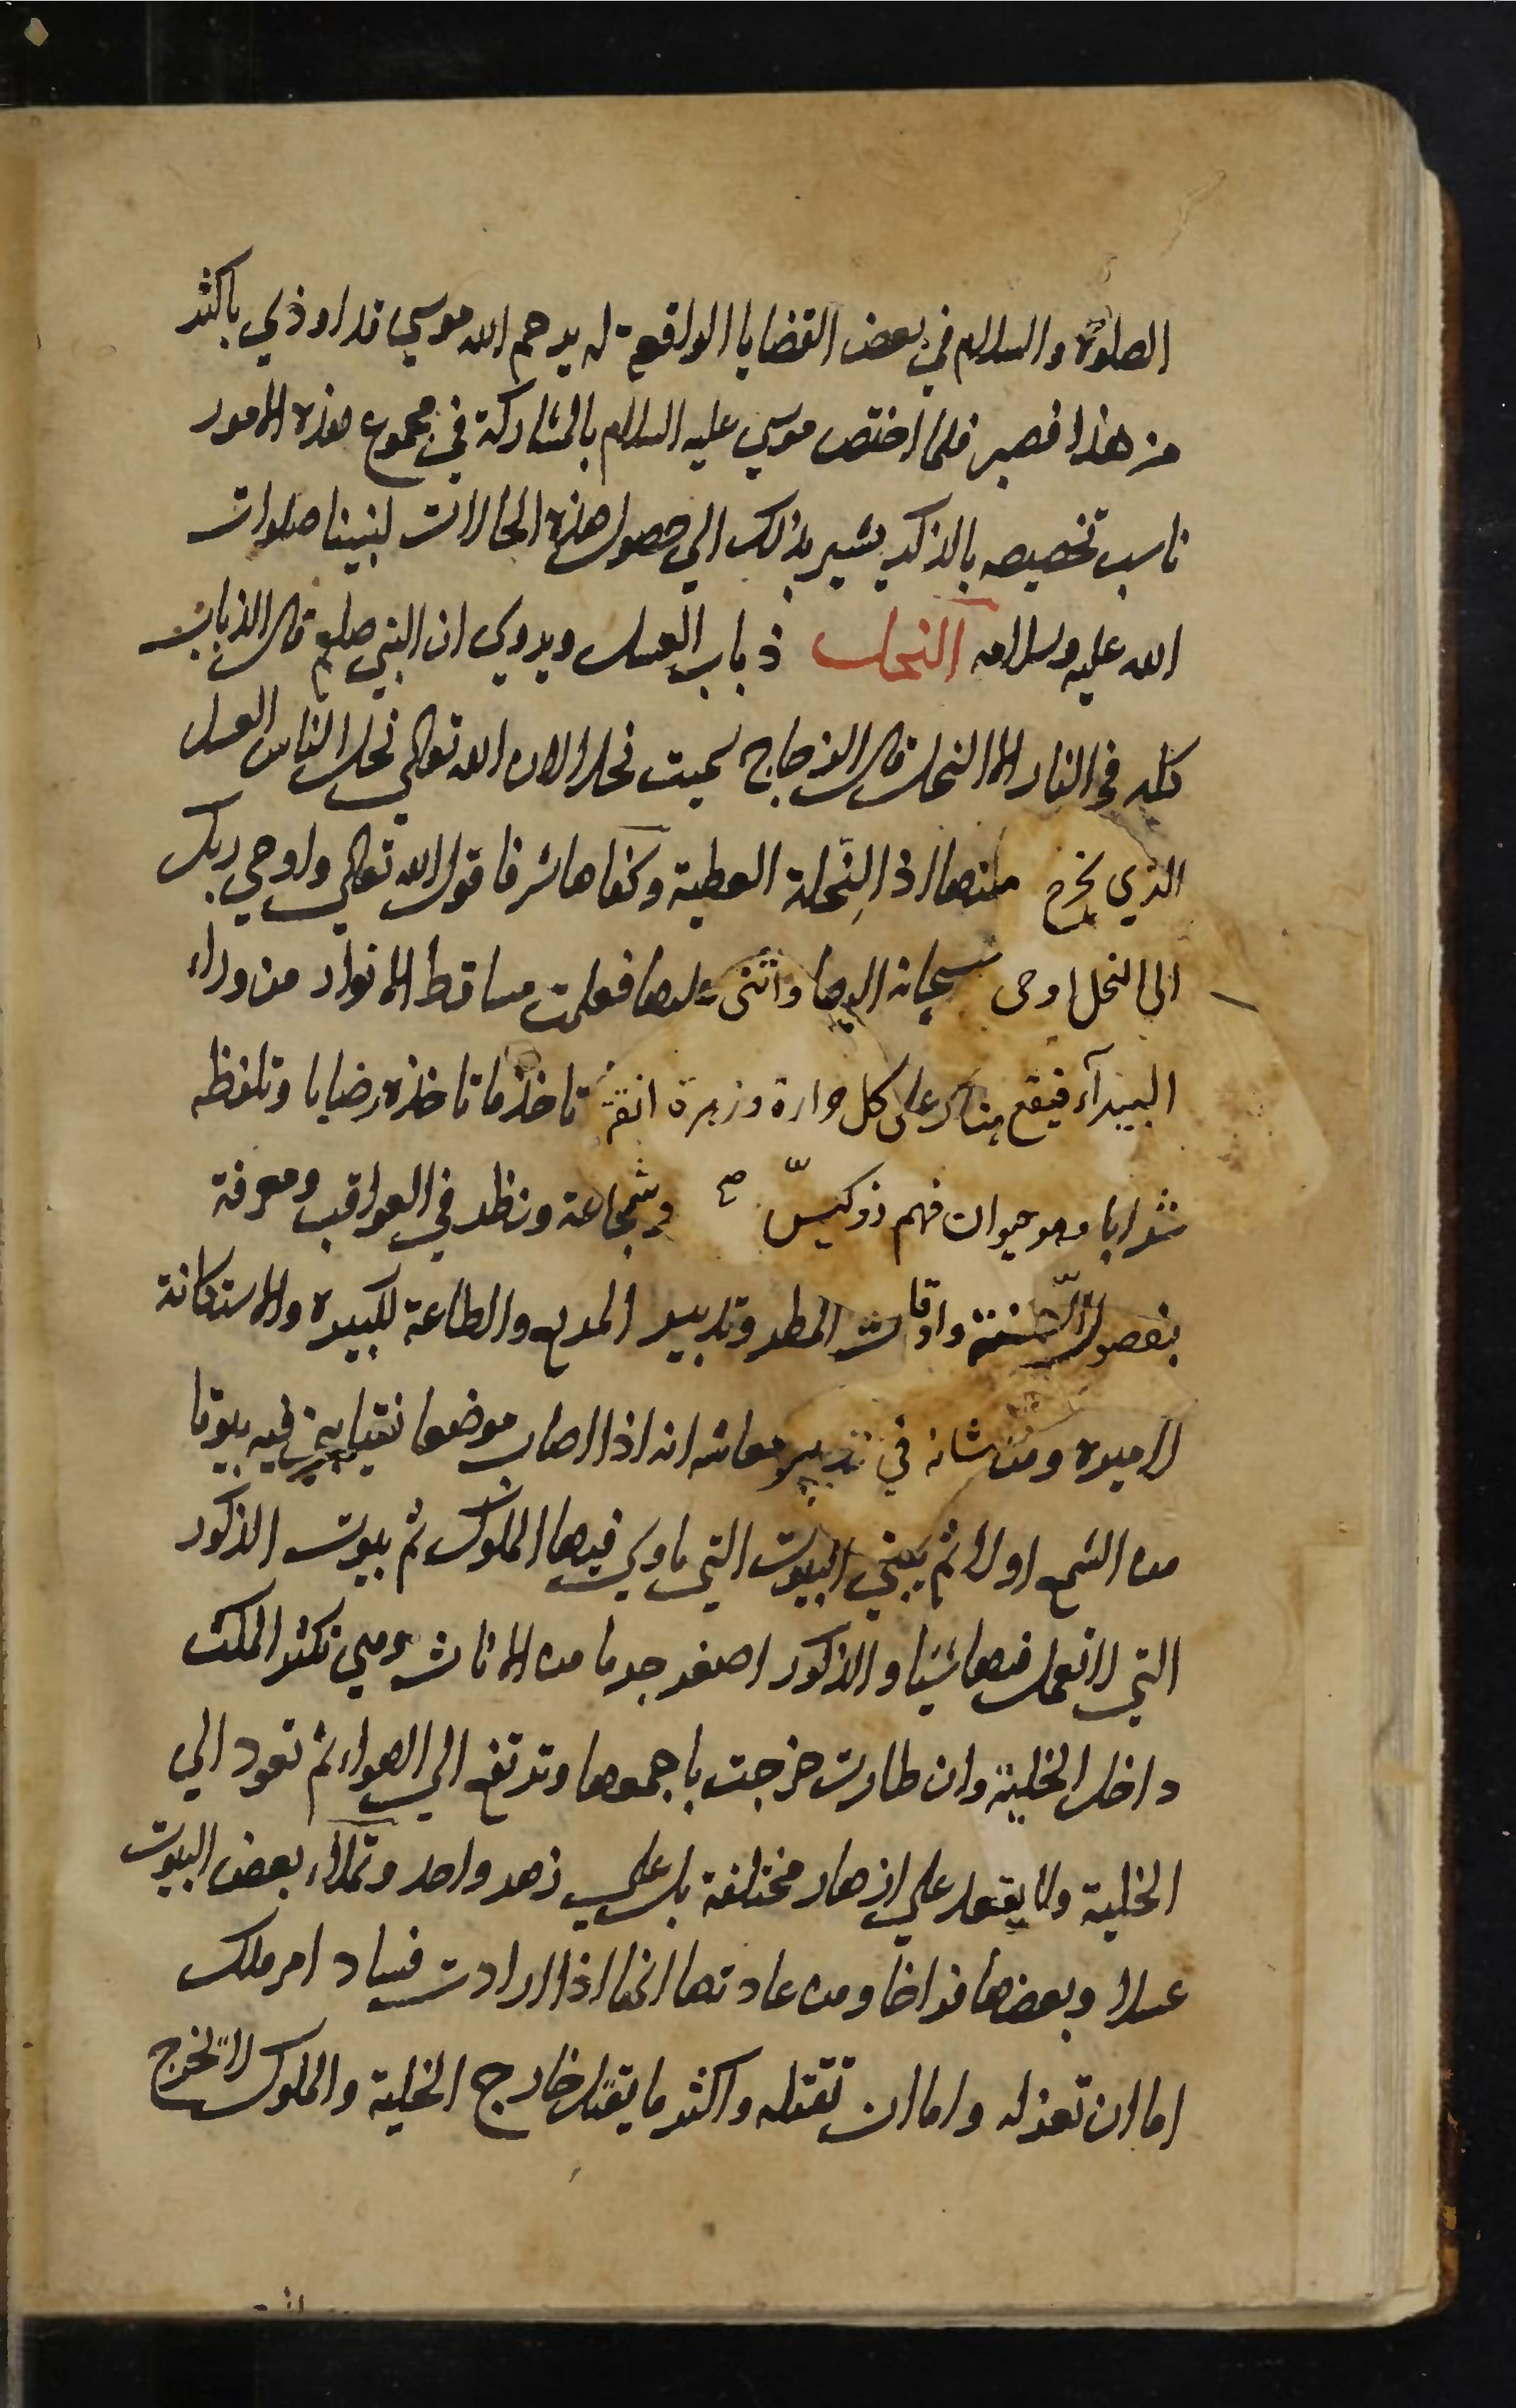 الصلوة والسلام في بعض القضايا الواقعة له يرحم الله موسي قد اوذي باكثر
من هذا فصبر فلما اختص موسي عليه السلام بالمشاركة في مجموع هذه الامور
ناسب تخصيصه بالذكر يشير بذلك الي حصول هذه الحالات لنبينا صلوات
الله عليه وسلامه النحل ذباب العسل ويروي ان النبي صلعم قال الذبان
كله في النار الا النحل قال الزجاج سميت نحلا لان الله تعالي نحل الناس العسل
الذي يخرج منها اذ النِحلة العطية وكفاها شرفا قول الله تعالي واوحي ربك
الى النحل اوحى سبحانه اليها واثنى عليها فعلمت مساقط الانواء من وراء
البيداء فيقع هناك على كل حوارة وزهرة انقة تاخذ ما تاخذه رضابا وتلفظه
شرابا وهو حيوان فهم ذو كيسّ وشجاعة ونظر في العواقب ومعرفة
بفصول السّنة واوقات المطر وتدبير المربع والطاعة لكبيره والاستكانة
لاميره ومن شانه في تدبير معاشه انه اذا اصاب موضعا نقيا يبني فيه بيوتا
من الشمع اولا ثم يبني البيوت التي ياوي فيها الملوك ثم بيوت الذكور
التي لا تعمل فيها شيا والذكور اصغر جرما من الاناث وهي تكثر المكث
داخل الخلية وان طارت خرجت باجمعها وترتفع الي الهواء ثم تعود الي
الخلية ولا يقعد علي ازهار مختلفة بل علي زهر واحد وتملاء بعض البيوت
عسلا وبعضها فراخا ومن عادتها انها اذا ارادت فساد امر ملك
اما ان تعزله واما ان تقتله واكثر ما يقتل خارج الخلية والملوك لا تخرج